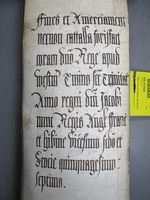 Fines et Amerciament
necnon catalla forisfact
coram dno Rege apud
westm Termino sce Trinitat
Anno regni dni Jacobi
nunc Regis Angl ffrancie
et hibnie vicesimo scdo et
Scocie quinquagesimo
septimo.